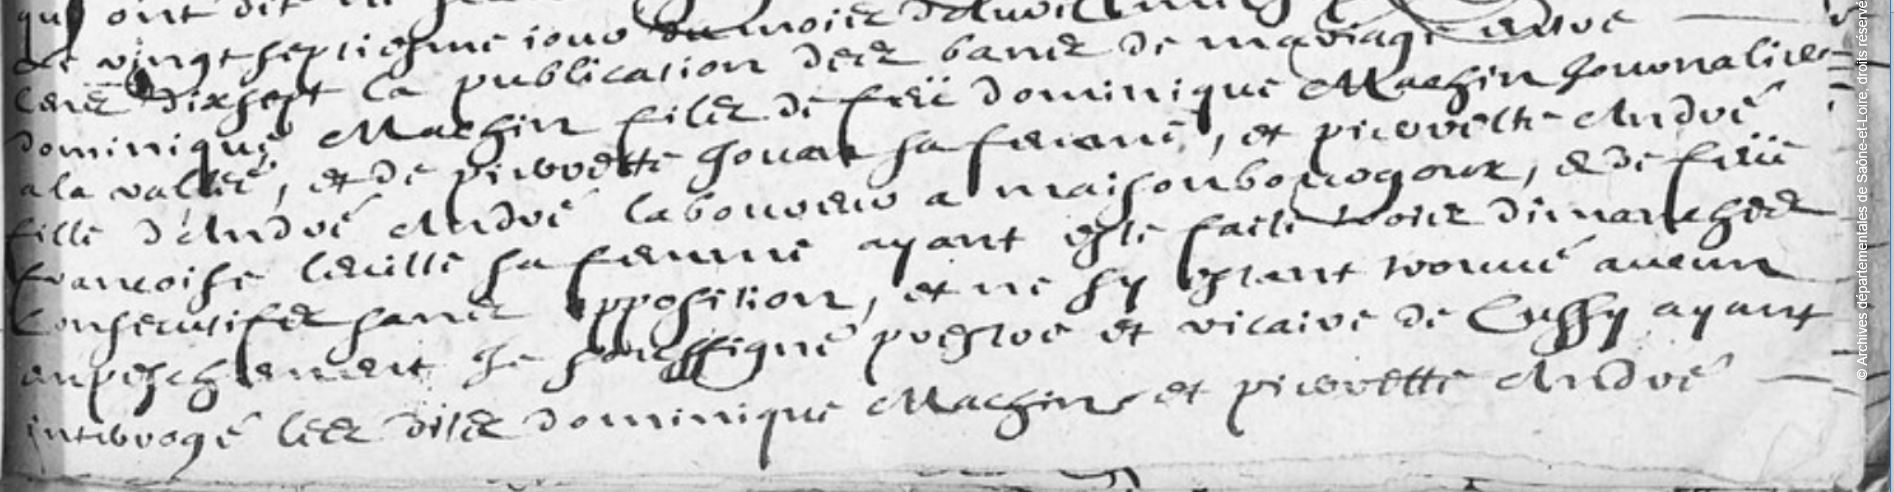 qui ont dit
Le vingt septiesme jour du mois d'Avril mil
cens dixsept la publication des bans de mariage entre
dominique Machin fils de feü dominique Machin Journalier
a la vallée, et de pierrette Jouar sa femme, et pierrette André
fille d'André André laboureur a maisonbourogoux, & de feüe
francoise leuille sa femme ayant esté faite trois dimanches
consecutifes sans opposition, et ne sy estant trouué aucun
anpeschement Je soussigné prestre et vicaire de Cussy ayant
interrogé les dites dominique Machin et pierrette André
© Archives départementales de Saône-et-Loire, droits réservé